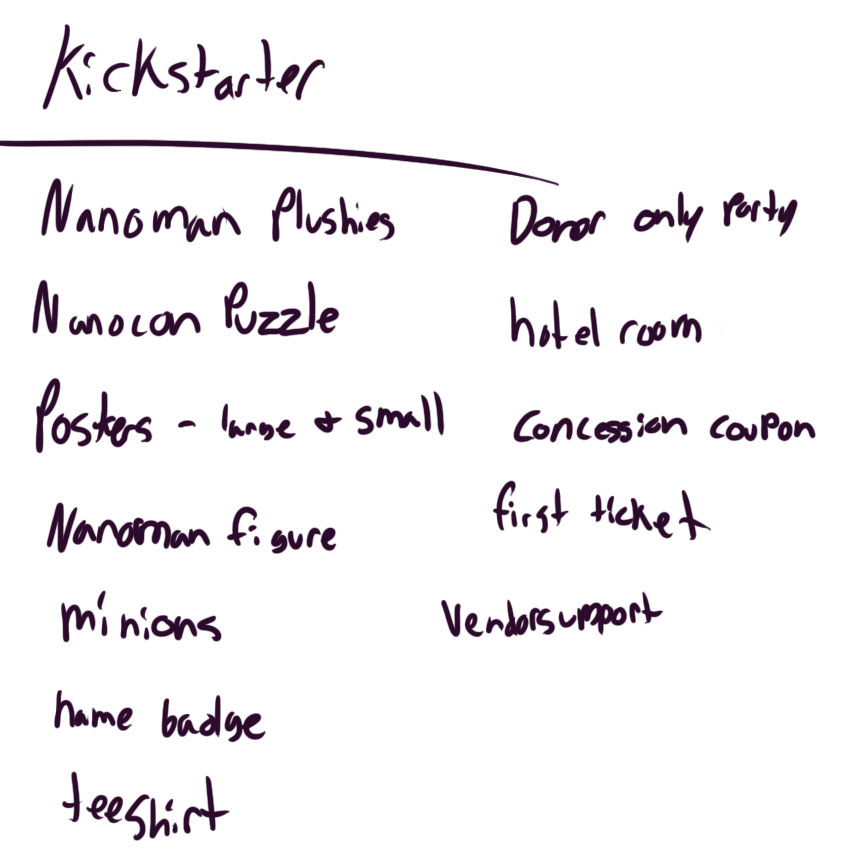 Kickstarter
Nanoman Plushies
Nanocon Puzzle
Posters - large & small
Nanoman figure
minions
name badge
teeshirt
Donor only party
hotel room
Concession coupon
first ticket
Vendorsumport